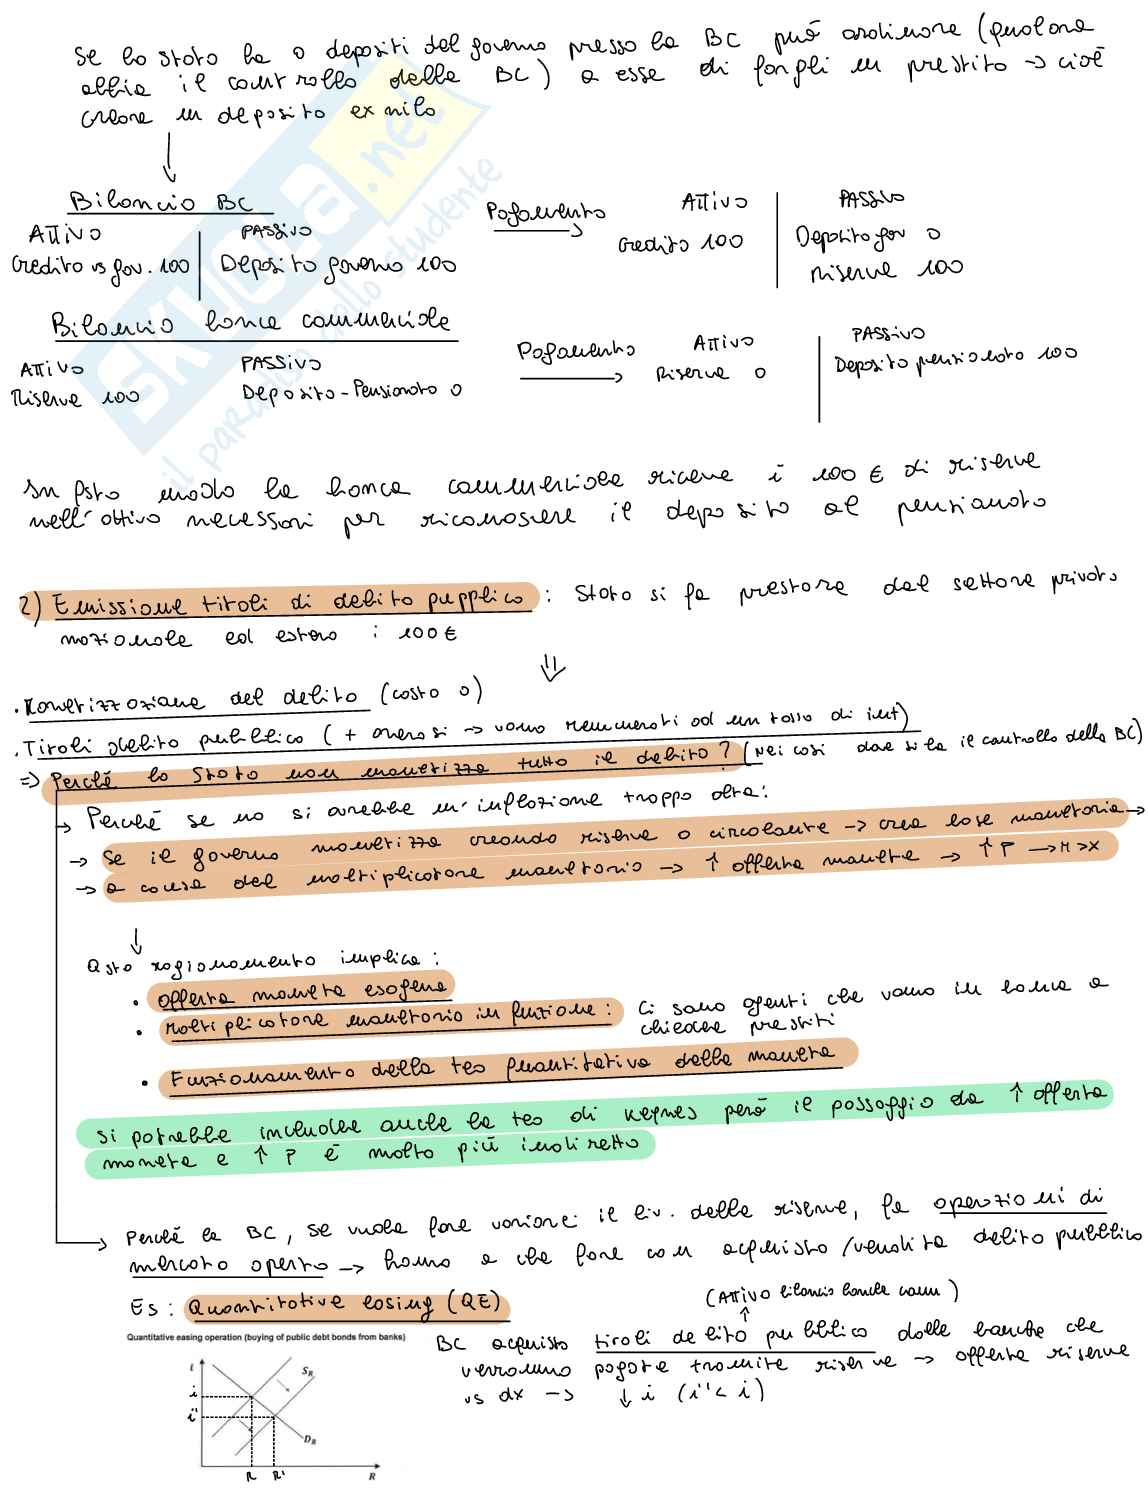 Se lo stato ha 0 depositi del governo presso la BC può ordinare (qualora
abbia il controllo della BC) a esse di fargli un prestito → cioè
creare un deposito ex nilo
Bilancio BC
ATTIVO PASSIVO
Credito vs gov. 100 Deposito governo 100
Pagamento →
ATTIVO PASSIVO
Credito 100 Deposito gov 0
Riserve 100
Bilancio banca commerciale
ATTIVO PASSIVO
Riserve 100 Deposito-Pensionato 0
Pagamento →
ATTIVO PASSIVO
Riserve 0 Deposito pensionato 100
SKUOLA.net
il paradiso dello studente
In qsto modo la banca commerciale riceve i 100 € di riserve
nell'attivo necessari per riconoscere il deposito al pensionato
2) Emissione titoli di debito pupplico : Stato si fa prestare dal settore privato
nazionale ed estero i 100 €
. Monetizzazione del debito (costo 0)
. Titoli debito pubblico (+ onerosi → vanno remunerati ad un tasso di int)
⇒ Perché lo Stato non monetizza tutto il debito? (Nei casi dove si ha il controllo della BC)
→ Perché se no si avrebbe un'inflazione troppo alta:
→ Se il governo monetizza creando riserve o circolante → crea base monetaria →
→ a causa del moltiplicatore monetario → ↑ offerta moneta → ↑ P → M > X
Qsto ragionamento implica:
• offerta moneta esogena
• Moltiplicatore monetario in funzione: Ci sono agenti che vanno in banca a
chiedere prestiti
• Funzionamento della teo quantitativa della moneta
Si potrebbe includere anche la teo di Keynes però il passaggio da ↑ offerta
moneta e ↑ P è molto più indiretto
→ Perché la BC, se vuole fare variare il liv. delle riserve, fa operazioni di
mercato aperto → hanno a che fare con acquisto/vendita debito pubblico
Es: Quantitative easing (QE)
(Attivo bilancio banche comm)
Quantitative easing operation (buying of public debt bonds from banks)
BC acquista titoli debito pubblico dalle banche che
verranno pagate tramite riserve → offerta riserve
vs dx → ↓ i (i'' < i)
i
S_R
i
i''
D_R
R R' R